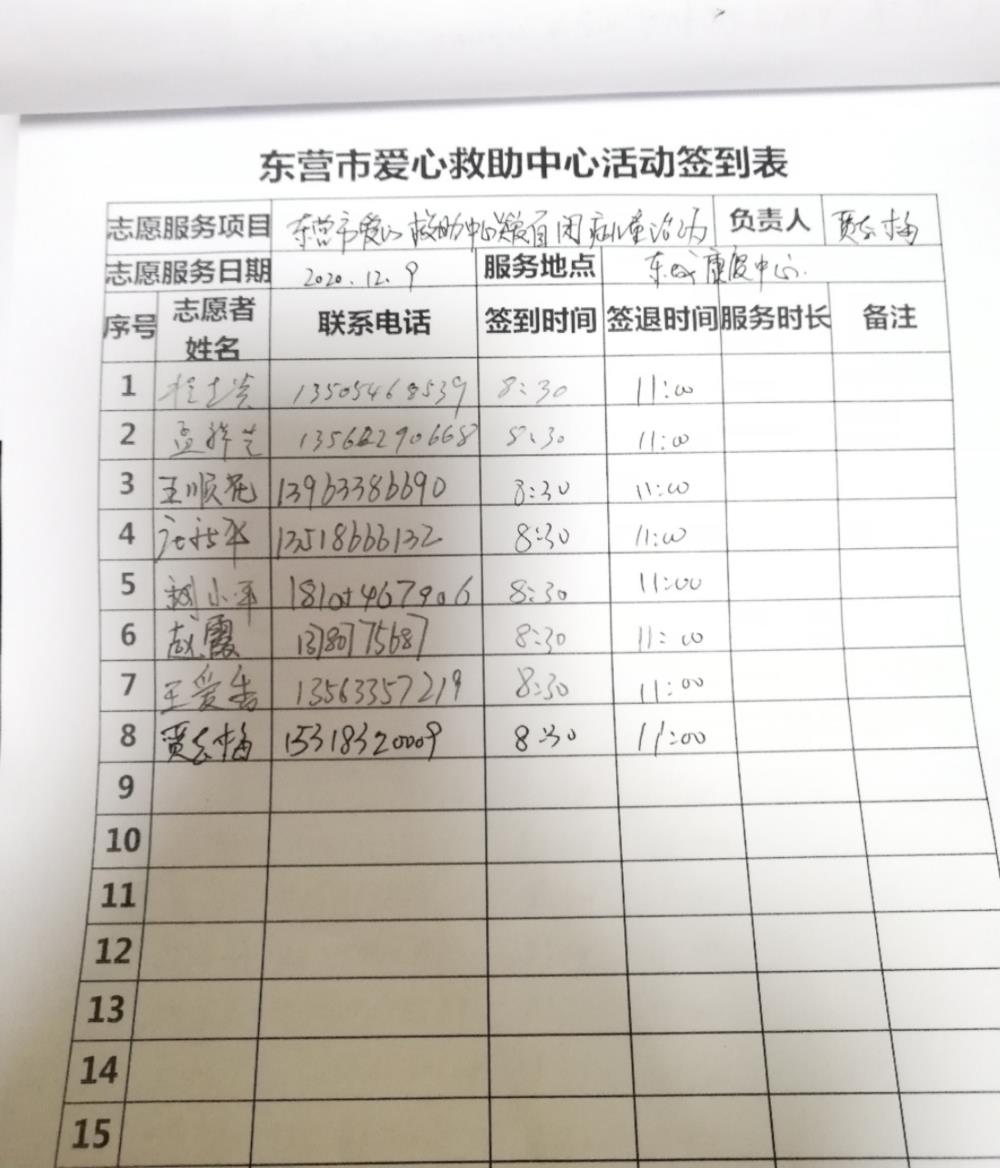 东营市爱心救助中心活动签到表
志愿服务项目 东营市爱心救助中心关爱自闭症儿童活动 负责人 贾冬梅
志愿服务日期 2020.12.9 服务地点 东城康复中心.
序号 志愿者姓名 联系电话 签到时间 签退时间 服务时长 备注
1 13505468539 8:30 11:00
2 孟祥兰 13562290668 8:30 11:00
3 王顺花 13963386690 8:30 11:00
4 13518666132 8:30 11:00
5 刘小平 18105467906 8:30 11:00
6 赵霞 13780775687 8:30 11:00
7 王爱 13563357219 8:30 11:00
8 贾冬梅 15318320009 8:30 11:00
9
10
11
12
13
14
15